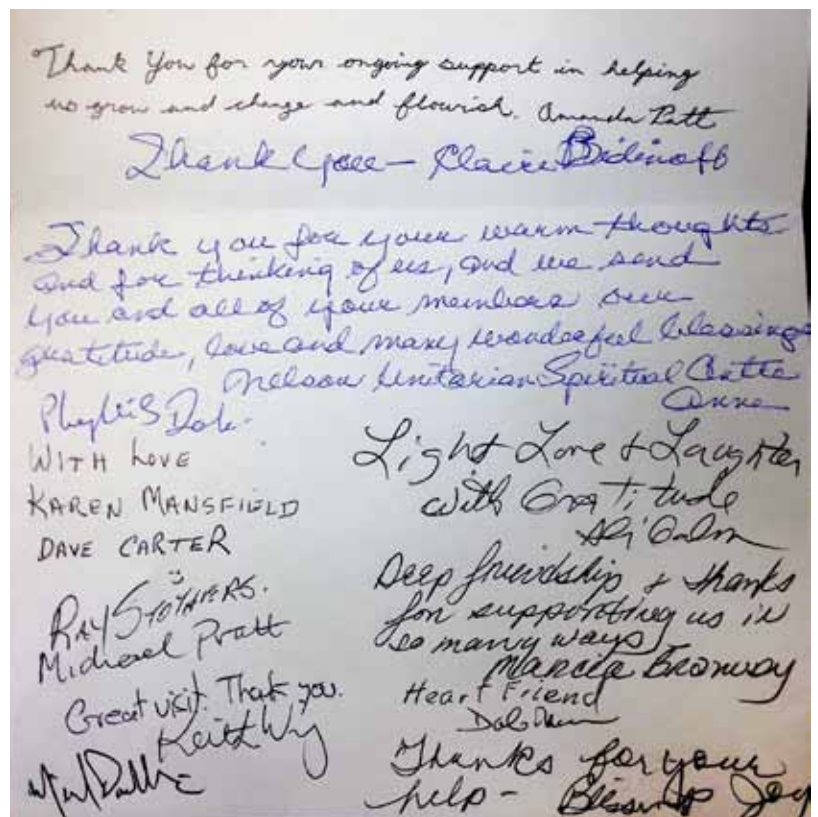 Thank You for your ongoing support in helping
us grow and change and flourish. Amanda Patt
Thank you - Claire Bidinoff
Thank you for your warm thoughts
and for thinking of us, and we send
you and all of your members our
gratitude, love and many wonderful blessings
Nelson Unitarian Spiritual Centre
Anne
Phyllis
WITH LOVE
KAREN MANSFIELD
DAVE CARTER
RAY STOTHERS.
Michael Pratt
Great visit. Thank you.
Keith
Light Love & Laughter
with Gratitude
Deep friendship & thanks
for supporting us in
so many ways
Marcia
Heart Friend
Thanks for your
help - Joy